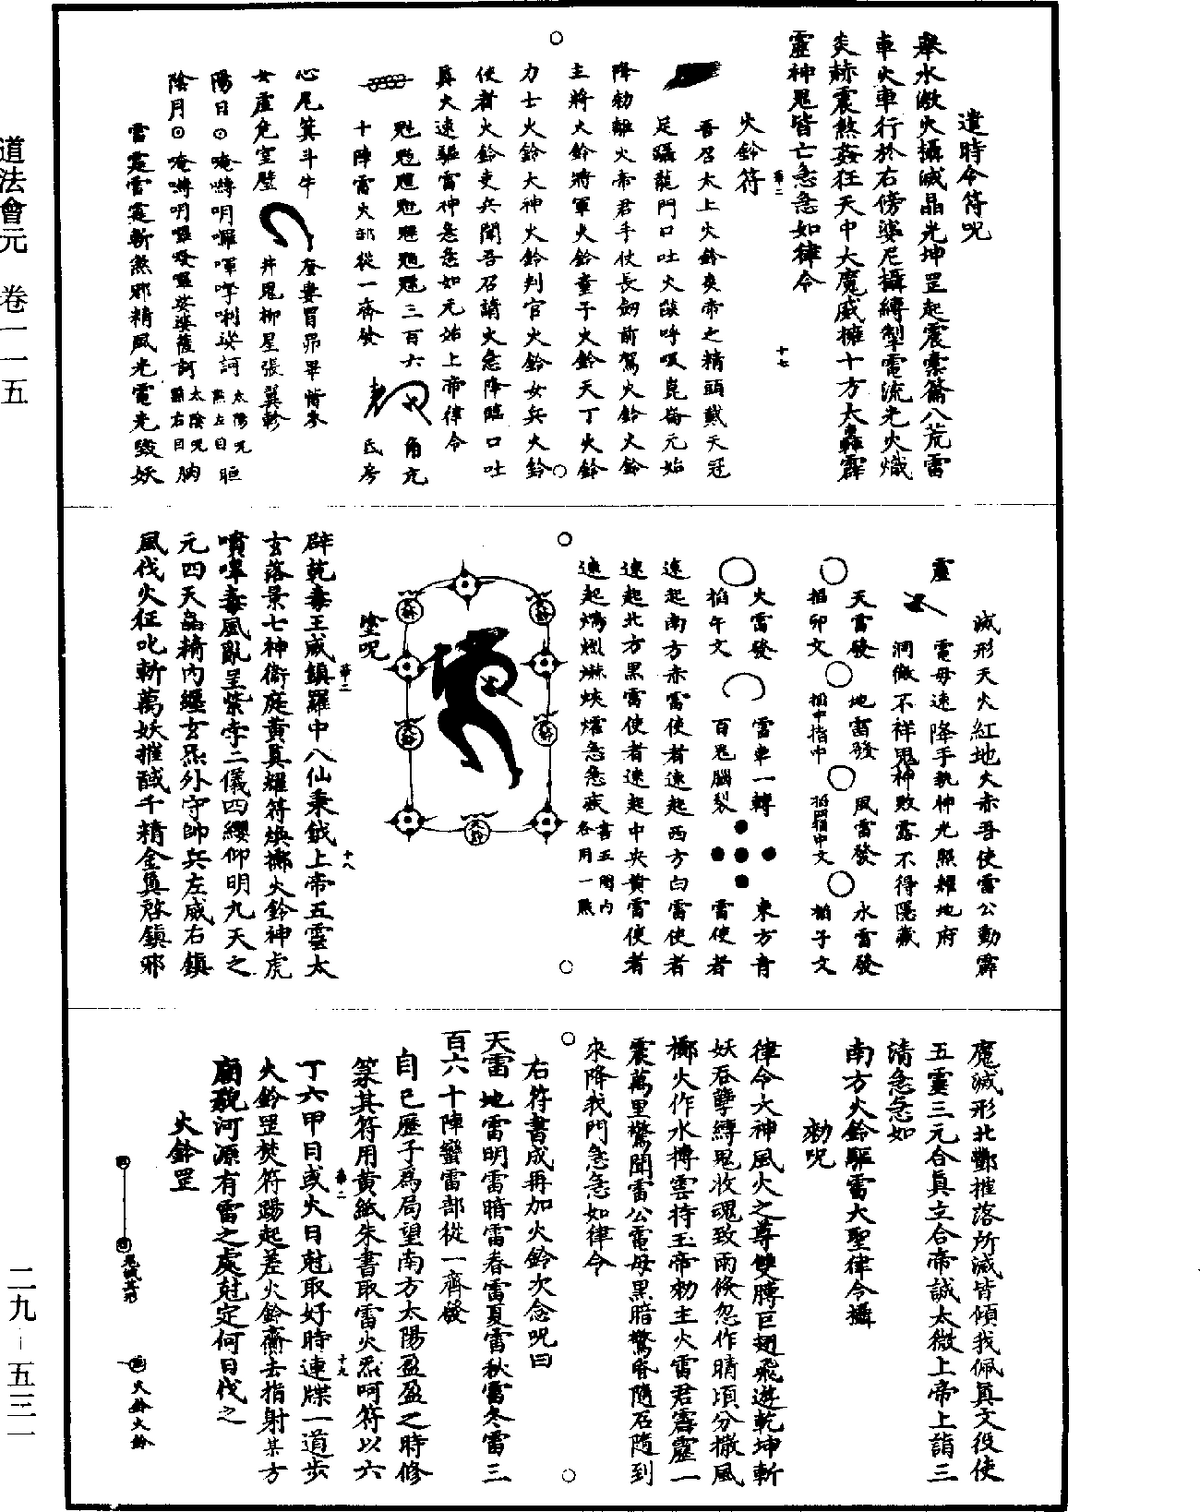 道法會元　卷一一五
二九－五三一
遣時令符呪
舉水激火攝滅晶光坤罡起震橐籥八荒雷
車火車行於右傍婆尼攝縛掣電流光火熾
炎赫震煞姦狂天中大魔威擁十方大轟霹
靂神鬼皆亡急急如律令
火鈴符
吾召太上火鈴炎帝之精頭戴天冠
足躡龍門口吐火燄呼吸崑崙元始
降勑離火帝君手仗長劒前駕火鈴火鈴
主將火鈴將軍火鈴童子火鈴天丁火鈴
力士火鈴大神火鈴判官火鈴女兵火鈴
使者火鈴吏兵聞吾召請火急降臨口吐
真火速驅雷神急急如元始上帝律令
三百六
十陣雷火部從一齊發
角亢
氐房
心尾箕斗牛
奎婁胃昴畢觜參
女虛危室壁
井鬼柳星張翼軫
陽日⊙唵
太陽呪
熙左目
陰月⊙唵
太陰呪
熙右目
雷霆雷霆斬煞邪精風光電光毀妖
減形天火紅地火赤吾使雷公動霹
靂
電母速降手執神光照耀地府
洞徹不祥鬼神敗露不得隱藏
天雷發
掐卯文
地雷發
掐中指中
風雷發
掐四指中文
水雷發
掐子文
火雷發
掐午文
雷車一轉
百鬼腦裂
東方青
雷使者
速起南方赤雷使者速起西方白雷使者
速起北方黑雷使者速起中央黃雷使者
速起
急急疾
書五閒內
各用一點
塗呪
辟乾毒王威鎮羅中八仙秉鉞上帝五雲太
玄落景七神衝庭黃真耀符煥擲火鈴神虎
噴嘷毒風亂呈紫字二儀四纓仰明九天之
元四天蟲精內纏玄炁外守帥兵左威右鎮
風伐火征叱斬萬妖摧馘千精金真啓鎮邪
魔滅形北酆摧落所滅皆傾我佩真文役使
五靈三元合真主合帝誠太微上帝上詣三
清急急如
南方火鈴驅雷大聖律令攝
勑呪
律令大神風火之尊雙膊巨翅飛遊乾坤斬
妖吞孽縛鬼收魂致雨倏忽作晴頃分撒風
擲火作水搏雲持玉帝勑主火雷君霹靂一
震萬里驚聞雷公電母黑暗驚昏隨石隨到
來降我門急急如律令
右符書成再加火鈴次念呪曰
天雷地雷明雷暗雷春雷夏雷秋雷冬雷三
百六十陣蠻雷部從一齊發
自己歷子爲局望南方太陽盈盈之時修
篆其符用黃紙朱書取雷火炁呵符以六
丁六甲日或火日尅取好時連牒一道步
火鈴罡焚符踢起差火鈴齋去指射某方
廟貌河源有雷之處尅定何日伐之
火鈴罡
火鈴火鈴